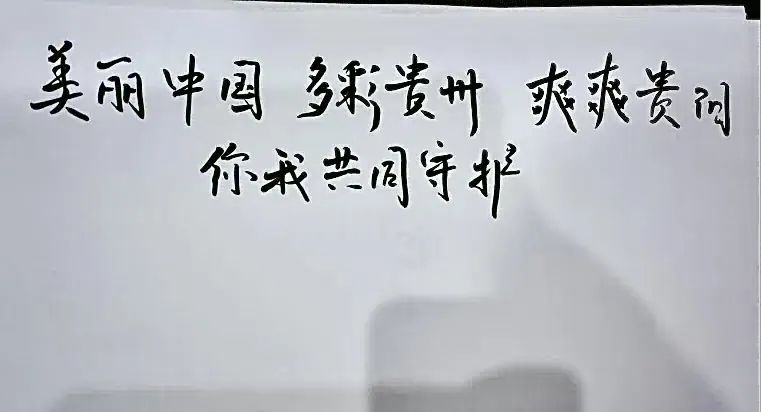 美丽中国 多彩贵州 爽爽贵阳
你我共同守护